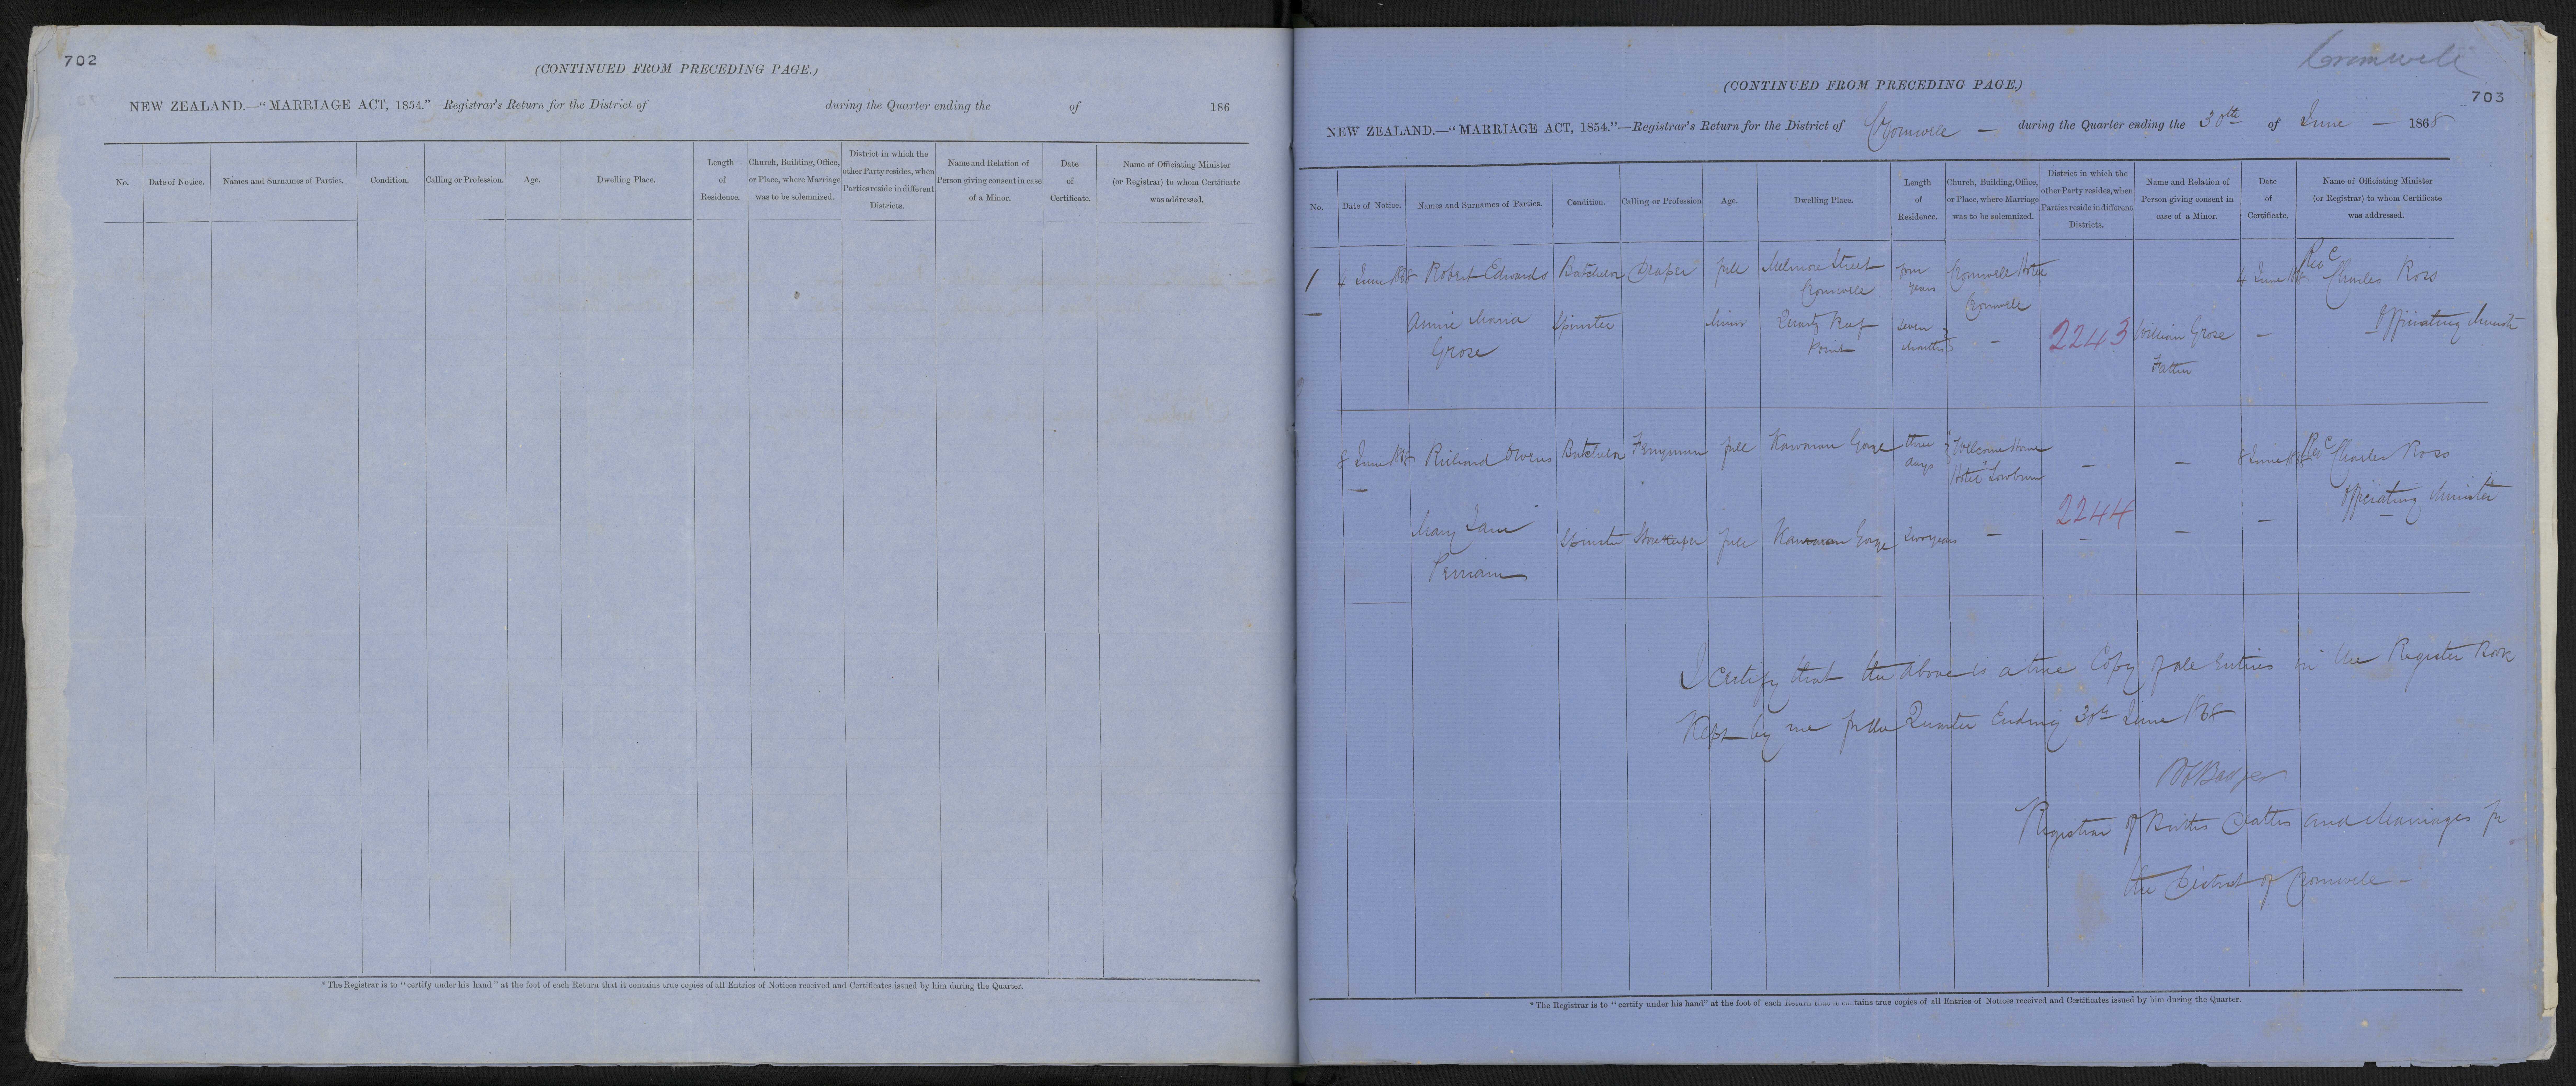 702
(CONTINUED FROM PRECEDING PAGE.)
NEW ZEALAND.—"MARRIAGE ACT, 1854."—Registrar's Return for the District of during the Quarter ending the of 186
No.
Date of Notice.
Names and Surnames of Parties.
Condition.
Calling or Profession.
Age.
Dwelling Place.
Length
of
Residence.
Church, Building, Office,
or Place, where Marriage
was to be solemnized.
District in which the
other Party resides, when
Parties reside in different
Districts.
Name and Relation of
Person giving consent in case
of a Minor.
Date
of
Certificate.
Name of Officiating Minister
(or Registrar) to whom Certificate
was addressed.
* The Registrar is to "certify under his hand" at the foot of each Return that it contains true copies of all Entries of Notices received and Certificates issued by him during the Quarter.
Cromwell
(CONTINUED FROM PRECEDING PAGE.)
703
NEW ZEALAND.—"MARRIAGE ACT, 1854."—Registrar's Return for the District of Cromwell — during the Quarter ending the 30th of June — 1868
No.
Date of Notice.
Names and Surnames of Parties.
Condition.
Calling or Profession
Age.
Dwelling Place.
Length
of
Residence.
Church, Building, Office,
or Place, where Marriage
was to be solemnized.
District in which the
other Party resides, when
Parties reside in different
Districts.
Name and Relation of
Person giving consent in
case of a Minor.
Date
of
Certificate.
Name of Officiating Minister
(or Registrar) to whom Certificate
was addressed.
1
4 June 1868
Robert Edwards
Batchelor
Draper
full
Melmore Street
Cromwell
four
years
Cromwell Hotel
Cromwell
4 June 1868
Revd
Charles Ross
Officiating Minister
Annie Maria
Grose
Spinster
Minor
Quartz Reef
Point
seven
months
—
2243
William Grose
Father
—
8 June 1868
Richard Owens
Batchelor
Ferryman
full
Kawarau Gorge
three
days
"Wellcome Home
Hotel" Lowburn
—
—
8 June 1868
Revd Charles Ross
Officiating Minister
Mary Jane
Perriam
Spinster
Storekeeper
full
Kawarau Gorge
two years
—
2244
—
—
—
I Certify that the above is a true Copy of all Entries in the Register Book
Kept by me for the Quarter Ending 30th June 1868
Registrar of Births Deaths and Marriages for
the District of Cromwell —
* The Registrar is to "certify under his hand" at the foot of each Return that it contains true copies of all Entries of Notices received and Certificates issued by him during the Quarter.